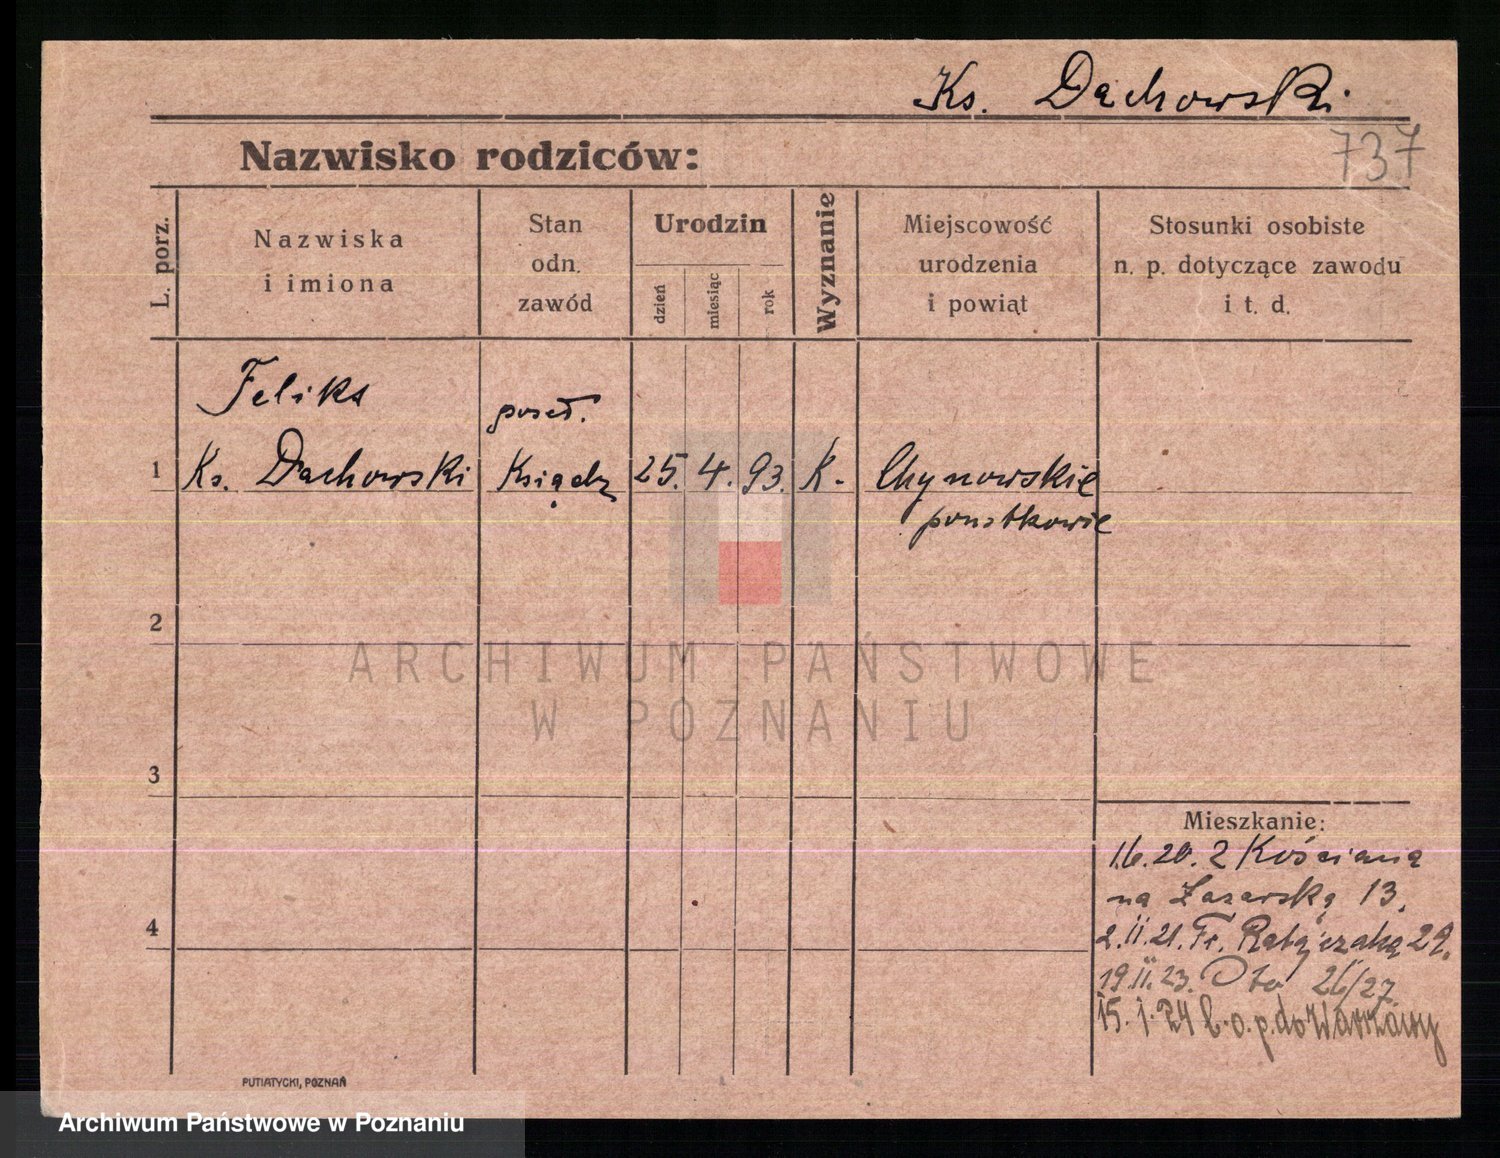 Ks. Dachowski
737
Nazwisko rodziców:
L. porz.
Nazwiska
i imiona
Stan
odn.
zawód
Urodzin
dzień
miesiąc
rok
Wyznanie
Miejscowość
urodzenia
i powiąt
Stosunki osobiste
n. p. dotyczące zawodu
i t. d.
Feliks
poseł.
1 Ks. Dachowski Ksiądz 25. 4. 93. K. Chynowskie
2
ARCHIWUM PAŃSTWOWE
W POZNANIU
3
Mieszkanie:
1.6.20. z Kościana
na Łazarską 13.
4
2.II.21. Fr. Ratajczaka 29.
19.II.23. Dto 26/27.
15.1.24 b.o.p. do Warszawy
PUTIATYCKI, POZNAŃ
Archiwum Państwowe w Poznaniu